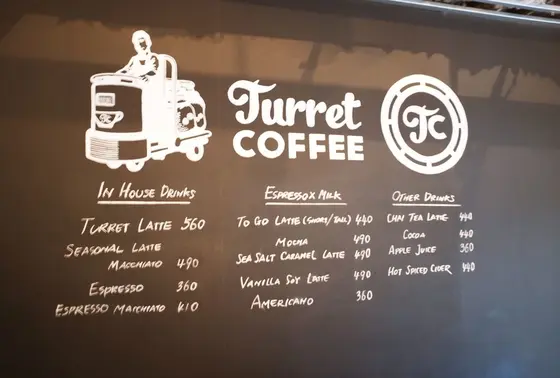 Turret
COFFEE
TC
TC
IN HOUSE DRINKS
TURRET LATTE 560
SEASONAL LATTE
MACCHIATO 490
ESPRESSO 360
ESPRESSO MACCHIATO 410
ESPRESSO X MILK
TO GO LATTE (SHORT/TALL) 440
MOCHA 490
SEA SALT CARAMEL LATTE 490
VANILLA SOY LATTE 490
AMERICANO 360
OTHER DRINKS
CHAI TEA LATTE 440
COCOA 440
APPLE JUICE 360
HOT SPICED CIDER 490